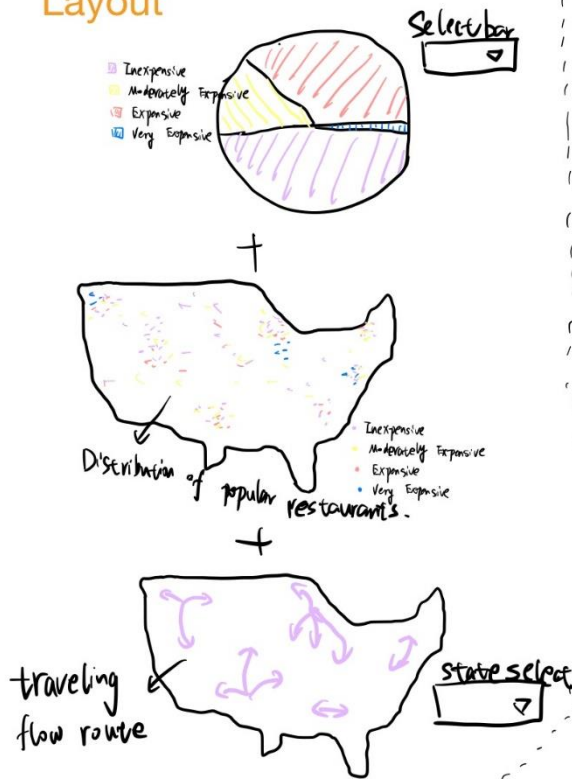 Layout
Select bar
Inexpensive
Moderately Expensive
Expensive
Very Expensive
+
Inexpensive
Moderately Expensive
Expensive
Very Expensive
Distribution of popular restaurants.
+
traveling
flow route
state select